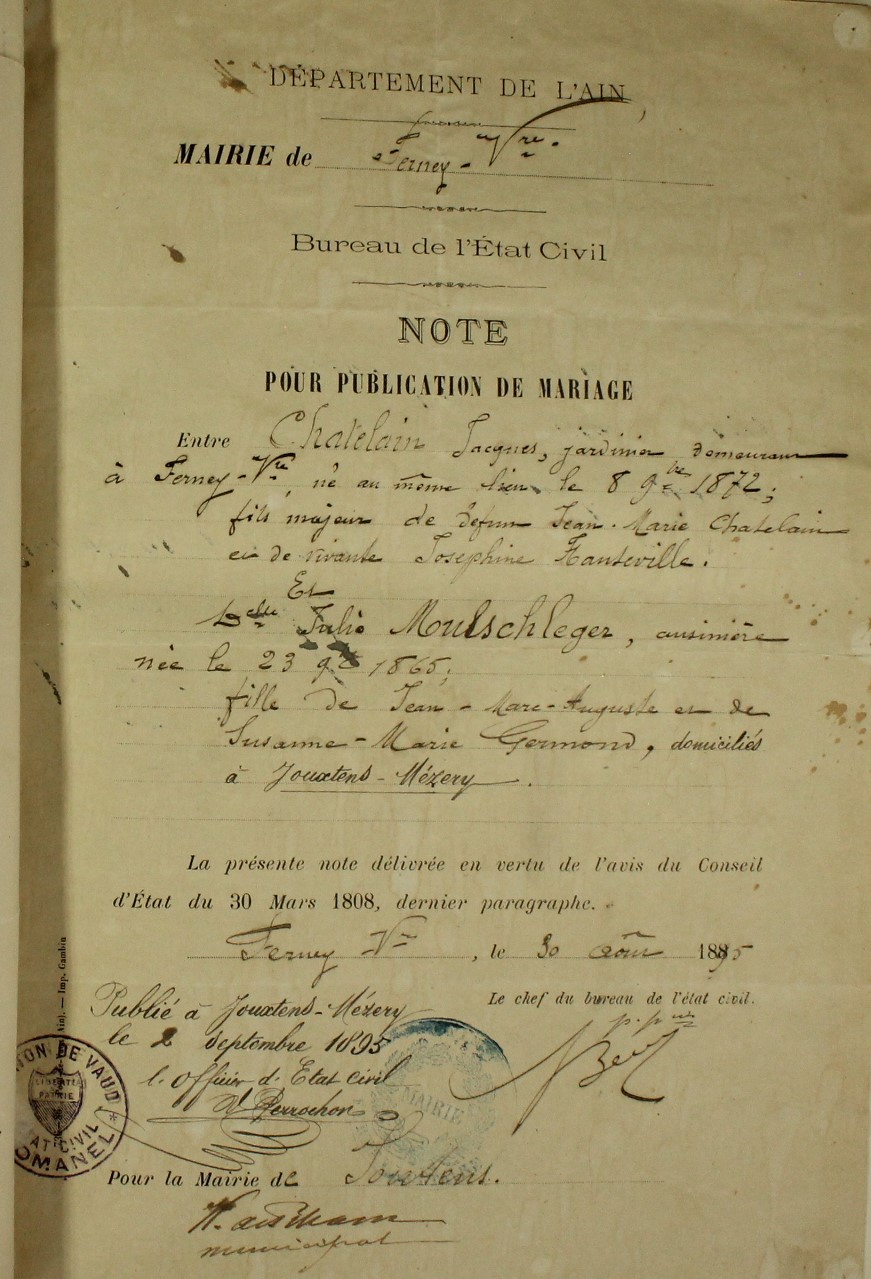 DÉPARTEMENT DE L'AIN
MAIRIE de Ferney-Vre.
Bureau de l'État Civil
NOTE
POUR PUBLICATION DE MARIAGE
Entre Chatelain Jacques, jardinier demeurant
à Ferney-Vre, né au même lieu, le 8 9bre 1872;
fils majeur de défunt Jean-Marie Chatelain
et de vivante Josephine Hauteville.
Et
Delle Julie Mutschleger, cuisinière
née le 23 9bre 1865;
fille de Jean-Marc-Auguste et de
Susanne-Marie Germond, domiciliés
à Jouxtens-Mézery.
La présente note délivrée en vertu de l'avis du Conseil
d'État du 30 Mars 1808, dernier paragraphe.
Ferney Vre, le 30 août 1895
Le chef du bureau de l'état civil.
Publié à Jouxtens-Mézery
le 2 septembre 1895
l. officier d'Etat civil
Perrochon
Imp. Gambon
CANTON DE VAUD
LIBERTÉ
PATRIE
ÉTAT CIVIL
ROMANEL
MAIRIE
Pour la Mairie de Jouxtens.
municipal